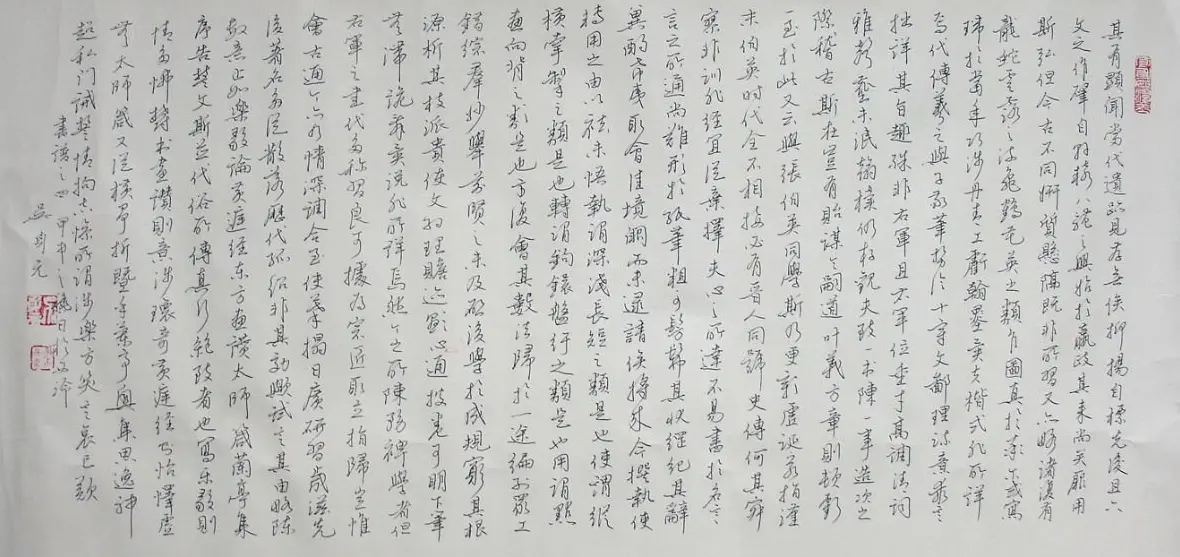 其有顯聞當代遺跡見存無俟抑揚自標先後且六
文之作肇自軒轅八體之興始於嬴政其來尚矣厥用
斯弘但今古不同妍質懸隔既非所習又亦略諸復有
龍蛇雲露之流龜鶴花英之類乍圖真於率尔或寫
瑞於當年巧涉丹青工虧翰墨異夫楷式非所詳
焉代傳羲之與子敬筆勢論十章文鄙理疏意乖言
拙詳其旨趣殊非右軍且右軍位重才高調清詞
雅聲塵未泯翰櫝仍存觀夫致一書陳一事造次之
際稽古斯在豈有貽謀令嗣道叶義方章則頓虧
一至於此又云與張伯英同學斯乃更彰虛誕若指漢
末伯英時代全不相接必有晉人同號史傳何其寂
寥非訓非經宜從棄擇夫心之所達不易盡於名言
言之所通尚難形於紙筆粗可髣髴其狀綱紀其辭
冀酌希夷取會佳境闕而未逮請俟將來今撰執使
轉用之由以祛未悟執謂深淺長短之類是也使謂縱
橫牽掣之類是也轉謂鉤鐶盤紆之類是也用謂點
畫向背之類是也方復會其數法歸於一途編列眾工
錯綜群妙舉前賢之未及啟後學於成規窺其根
源析其枝派貴使文約理贍迹顯心通披卷可明下筆
無滯詭辭異說非所詳焉然今之所陳務裨學者但
右軍之書代多稱習良可據為宗匠取立指歸豈惟
會古通今亦乃情深調合至使摹搨日廣研習歲滋先
後著名多從散落歷代孤紹非其効歟試言其由略陳
數意止如樂毅論黃庭經東方畫讚太師箴蘭亭集
序告誓文斯並代俗所傳真行絕致者也寫樂毅則
情多怫鬱書畫讚則意涉瓌奇黃庭經則怡懌虛
無太師箴又從橫爭折暨乎蘭亭興集思逸神
超私門誡誓情拘志慘所謂涉樂方笑言哀已歎
書譜之四甲申之秋日於